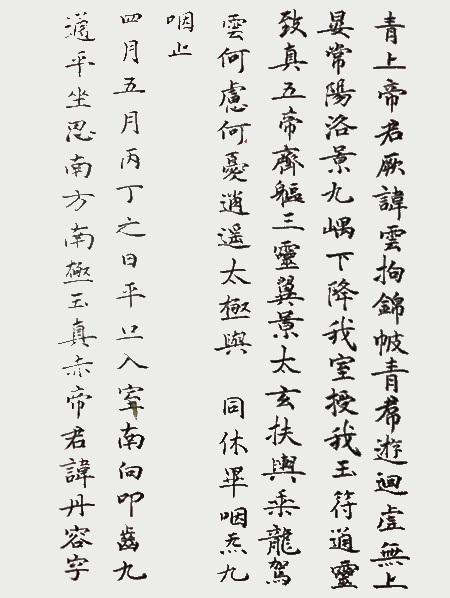 青上帝君厥諱雲拘錦帔青帬遊迴虛無上
晏常陽洛景九嵎下降我室授我玉符通靈
致真五帝齊軀三靈翼景太玄扶輿乘龍駕
雲何慮何憂逍遥太極與 同休畢咽炁九
咽止
四月五月丙丁之日平旦入室南向叩齒九
通平坐思南方南極玉真赤帝君諱丹容字